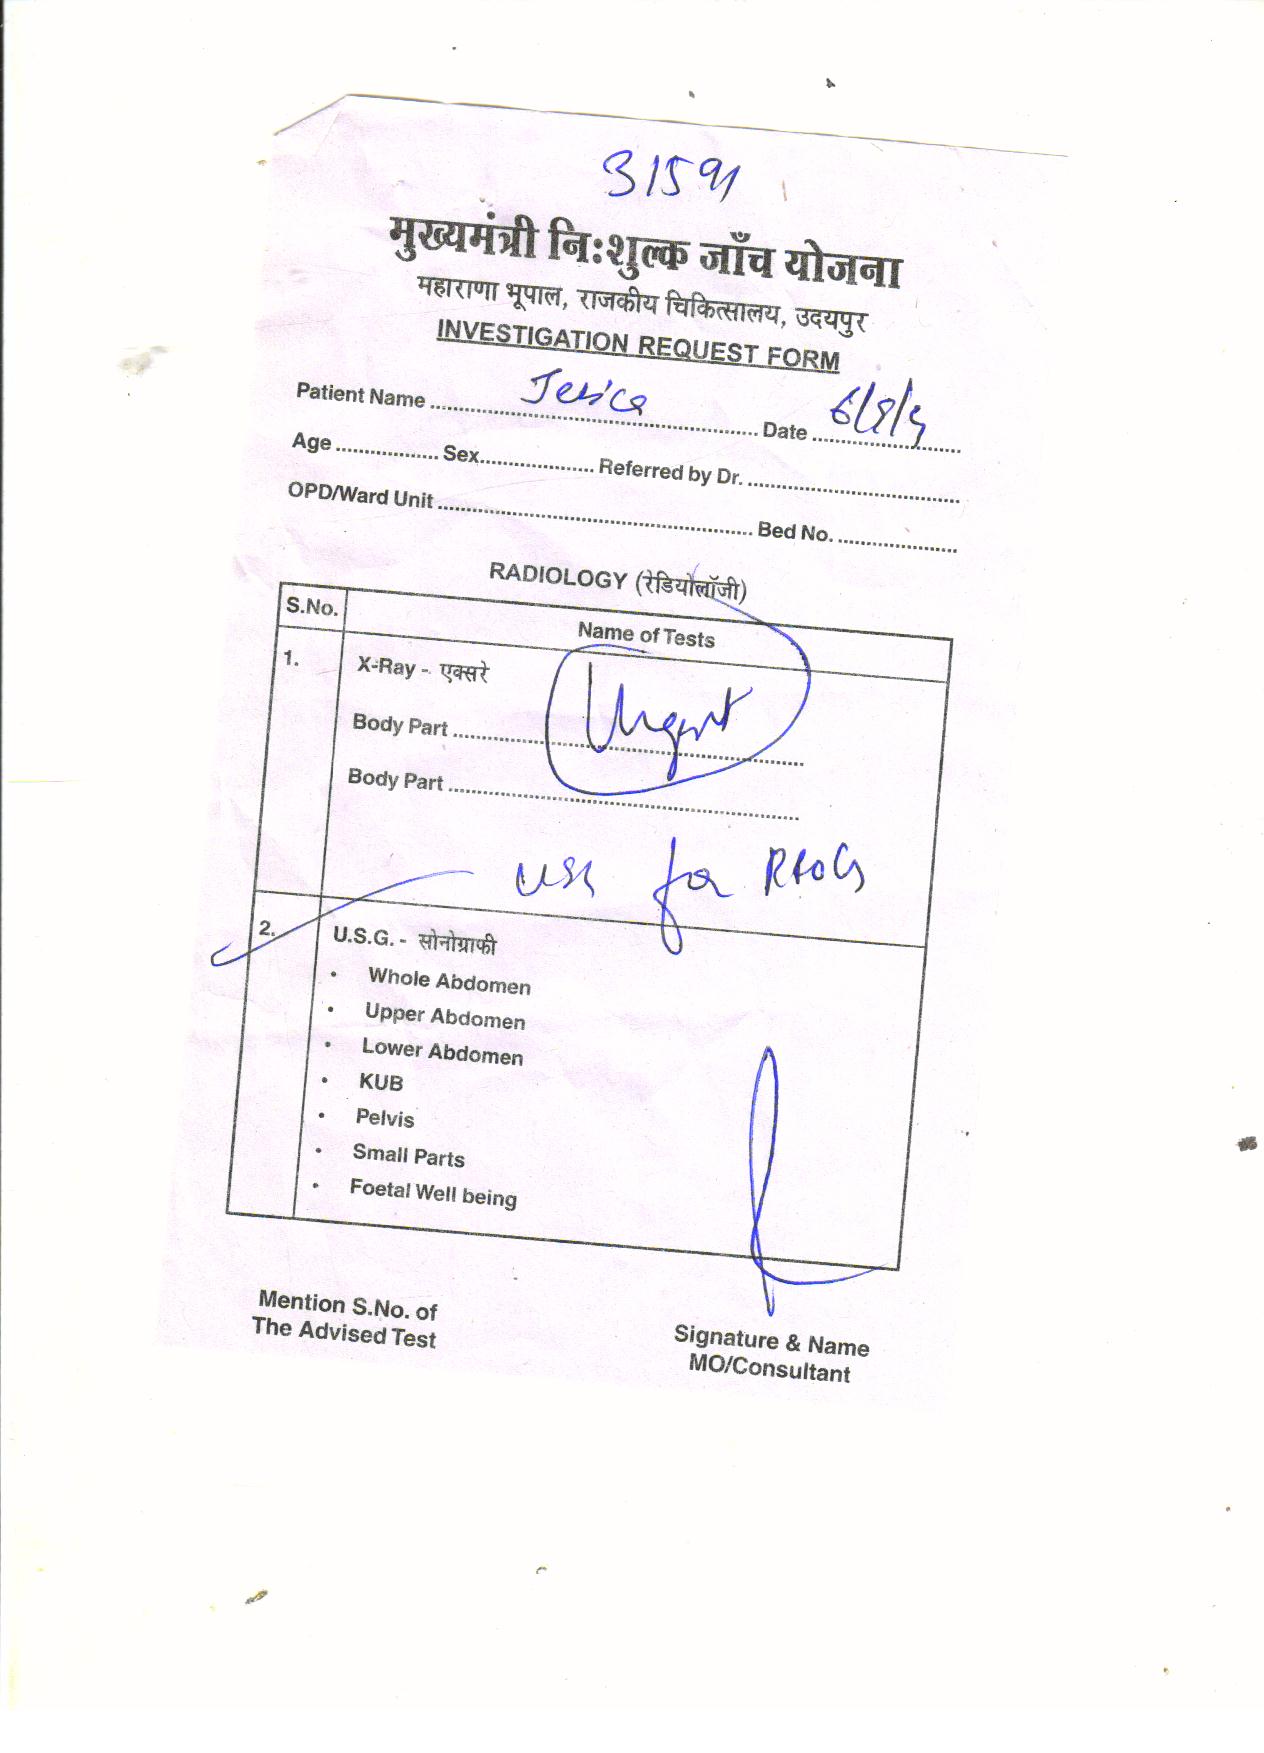 31591
मुख्यमंत्री नि:शुल्क जाँच योजना
महाराणा भूपाल, राजकीय चिकित्सालय, उदयपुर
INVESTIGATION REQUEST FORM
Patient Name ........ Jesica ........ Date ........
Age ........ Sex ........ Referred by Dr. ........
OPD/Ward Unit ........ Bed No. ........
RADIOLOGY (रेडियोलॉजी)
S.No. Name of Tests
1. X-Ray - एक्सरे
Body Part ........ Urgent
Body Part ........
for
2. U.S.G. - सोनोग्राफी
• Whole Abdomen
• Upper Abdomen
• Lower Abdomen
• KUB
• Pelvis
• Small Parts
• Foetal Well being
Mention S.No. of
The Advised Test
Signature & Name
MO/Consultant